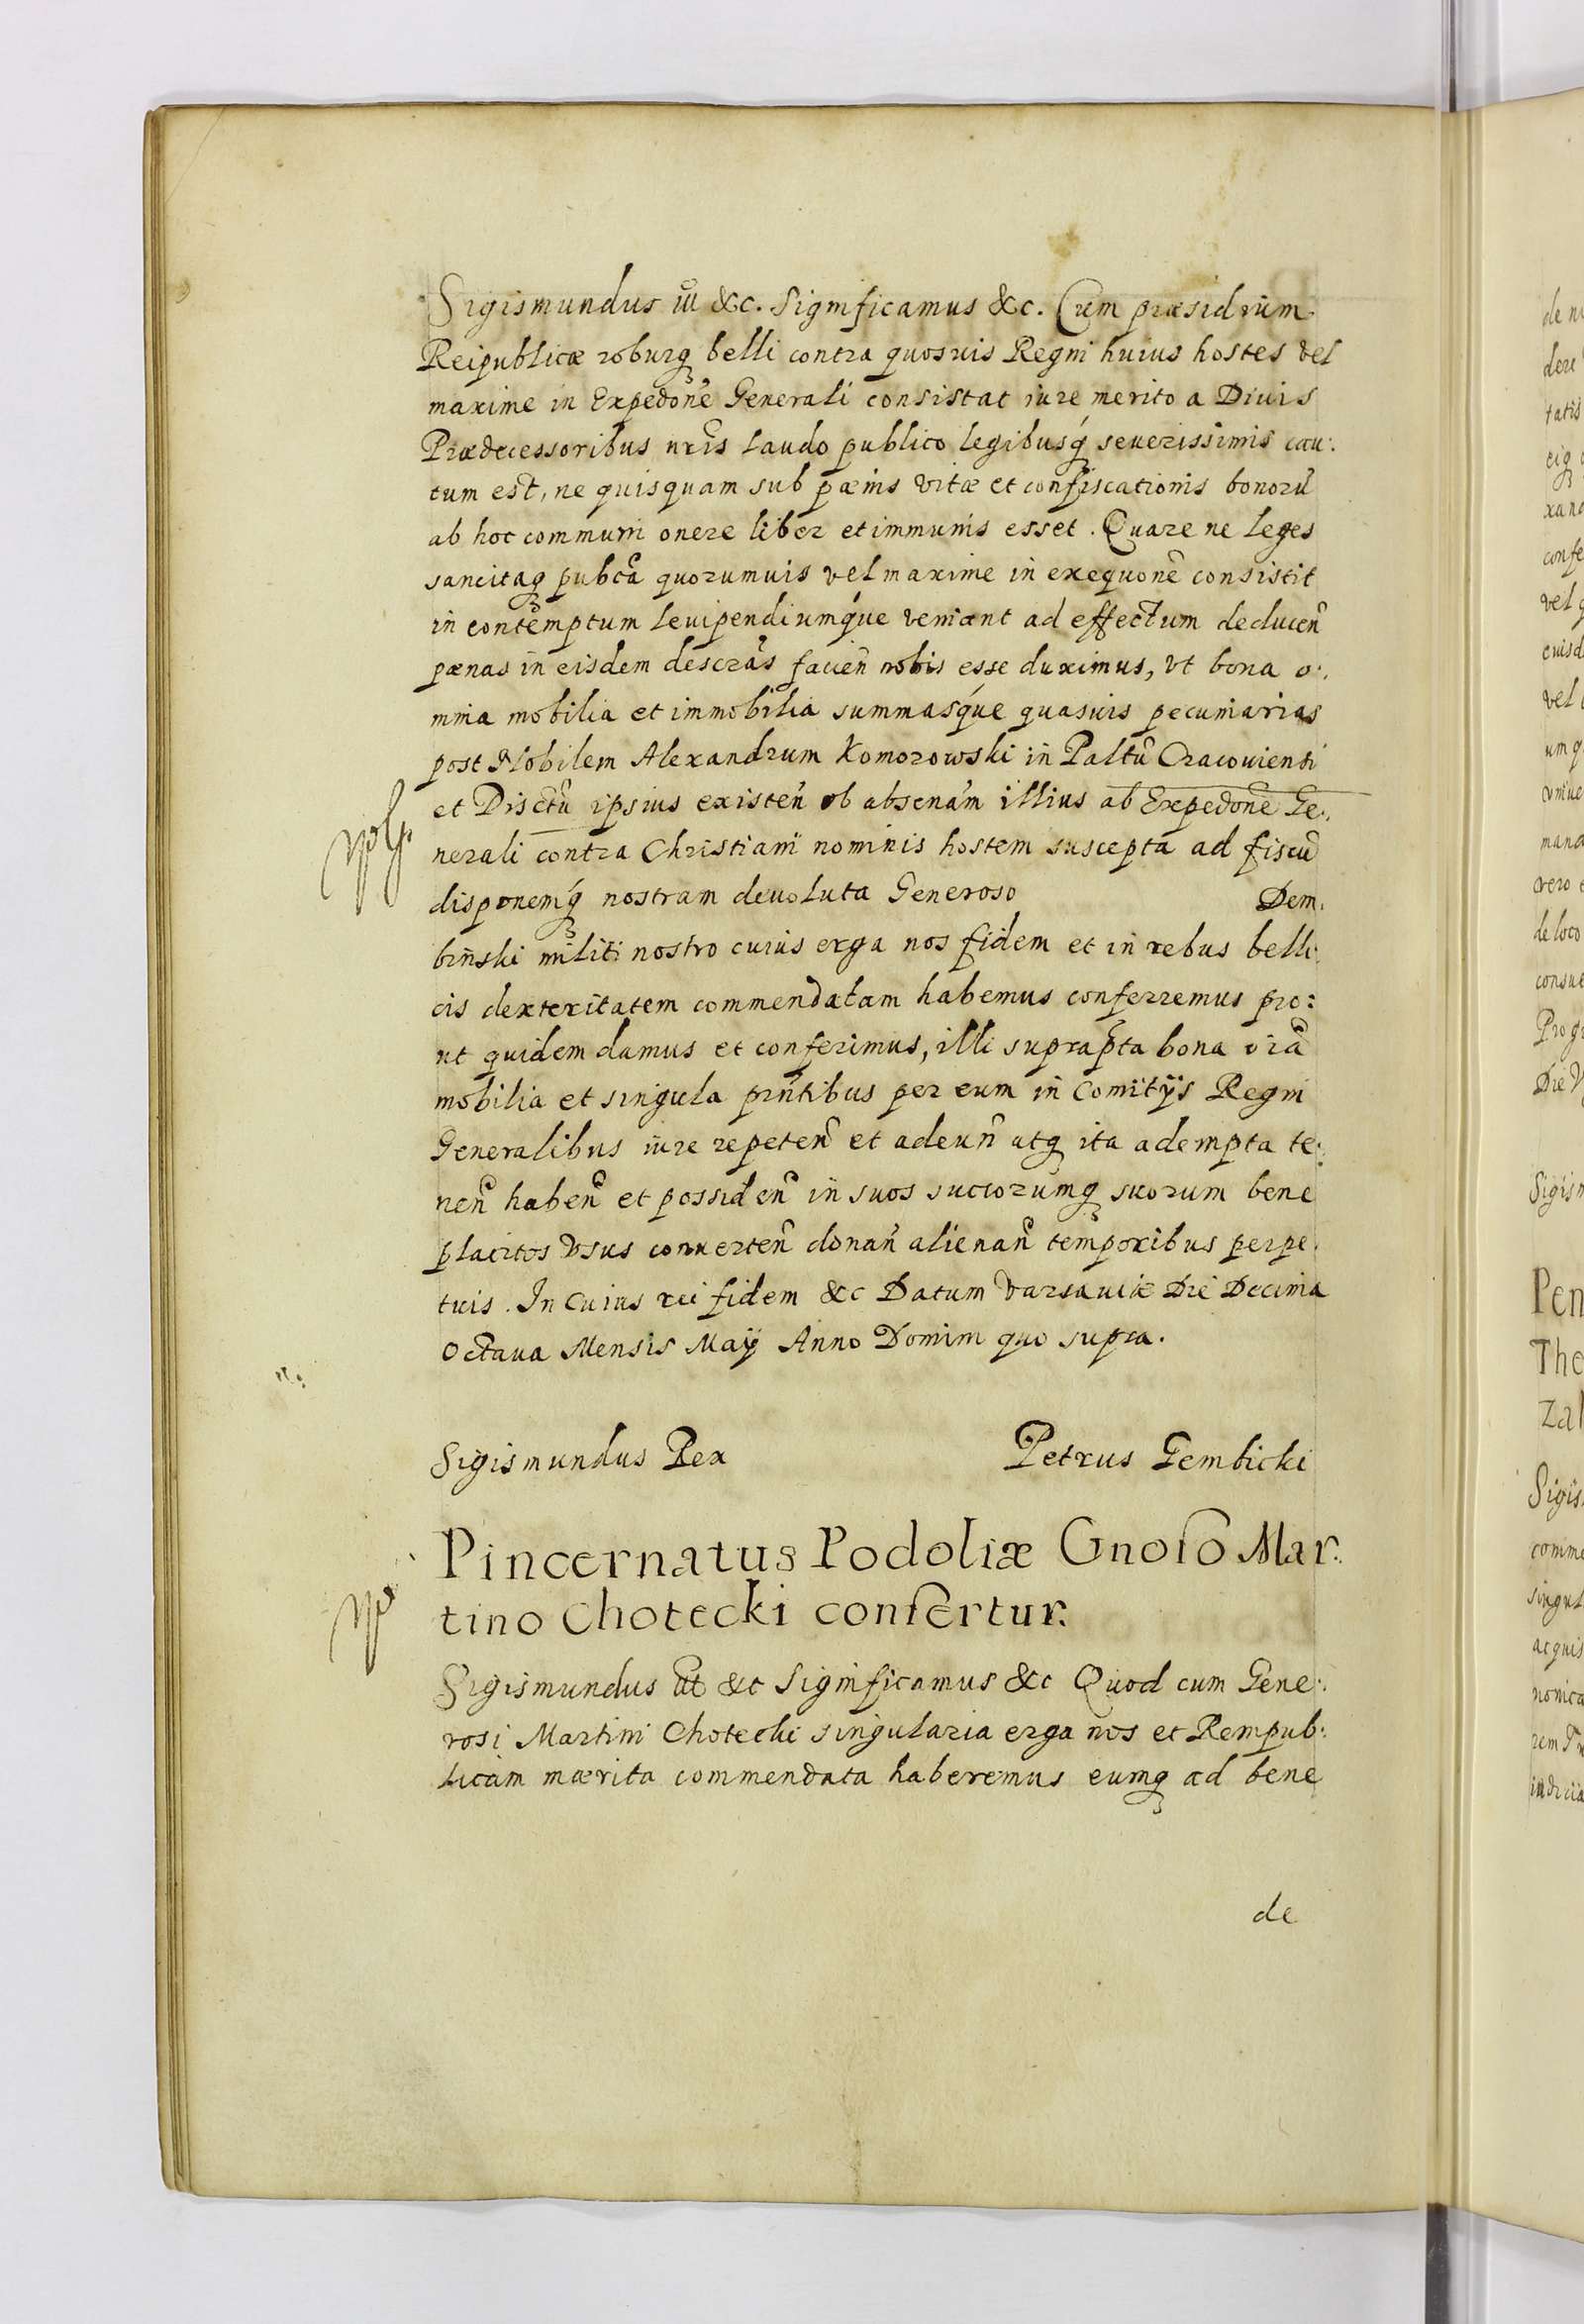 Sigismundus III &c. Significamus &c. Cum præsidium
Reipublicæ roburq belli contra quosvis Regni huius hostes vel
maxime in Expedone Generali consistat iure merito a Divis
Prædecessoribus nris laudo publico legibusq severissimis cau:
tum est, ne quisquam sub pænis vitæ et confiscationis bonorũ
ab hoc communi onere liber et immunis esset. Quare ne leges
sancitaq pubca quorumvis vel maxime in exequone consistit
in contemptum levipendiumque veniant ad effectum deducen
pænas in eisdem descras facien nobis esse duximus, vt bona o:
mnia mobilia et immobilia summasque quasvis pecuniarias
post Nobilem Alexandrum Komorowski in Paltu Cracoviensi
et Disctu ipsius existen ob absenam illius ab Expedone Ge:
nerali contra Christiani nominis hostem suscepta ad fiscũ
disponemq nostram devoluta Generoso Dem:
binski militi nostro cuius erga nos fidem et in rebus belli:
cis dexteritatem commendatam habemus conferremus pro:
ut quidem damus et conferimus, illi suprapta bona oia
mobilia et singula prntibus per eum in Comitÿs Regni
Generalibus iure repeten et adeun atq ita adempta te:
nen haben et possiden in suos succorumq suorum bene
placitos vsus converten donan alienan temporibus perpe:
tuis. In Cuius rei fidem &c Datum Varsaviæ Die Decima
Octava Mensis Maÿ Anno Domini quo supra.
Sigismundus Rex Petrus Gembicki
Pincernatus Podoliæ Gnoso Mar:
tino Chotecki confertur.
Sigismundus &c Significamus &c Quod cum Gene:
rosi Martini Chotecki singularia erga nos et Rempub:
licam mærita commendata haberemus eumq ad bene
de